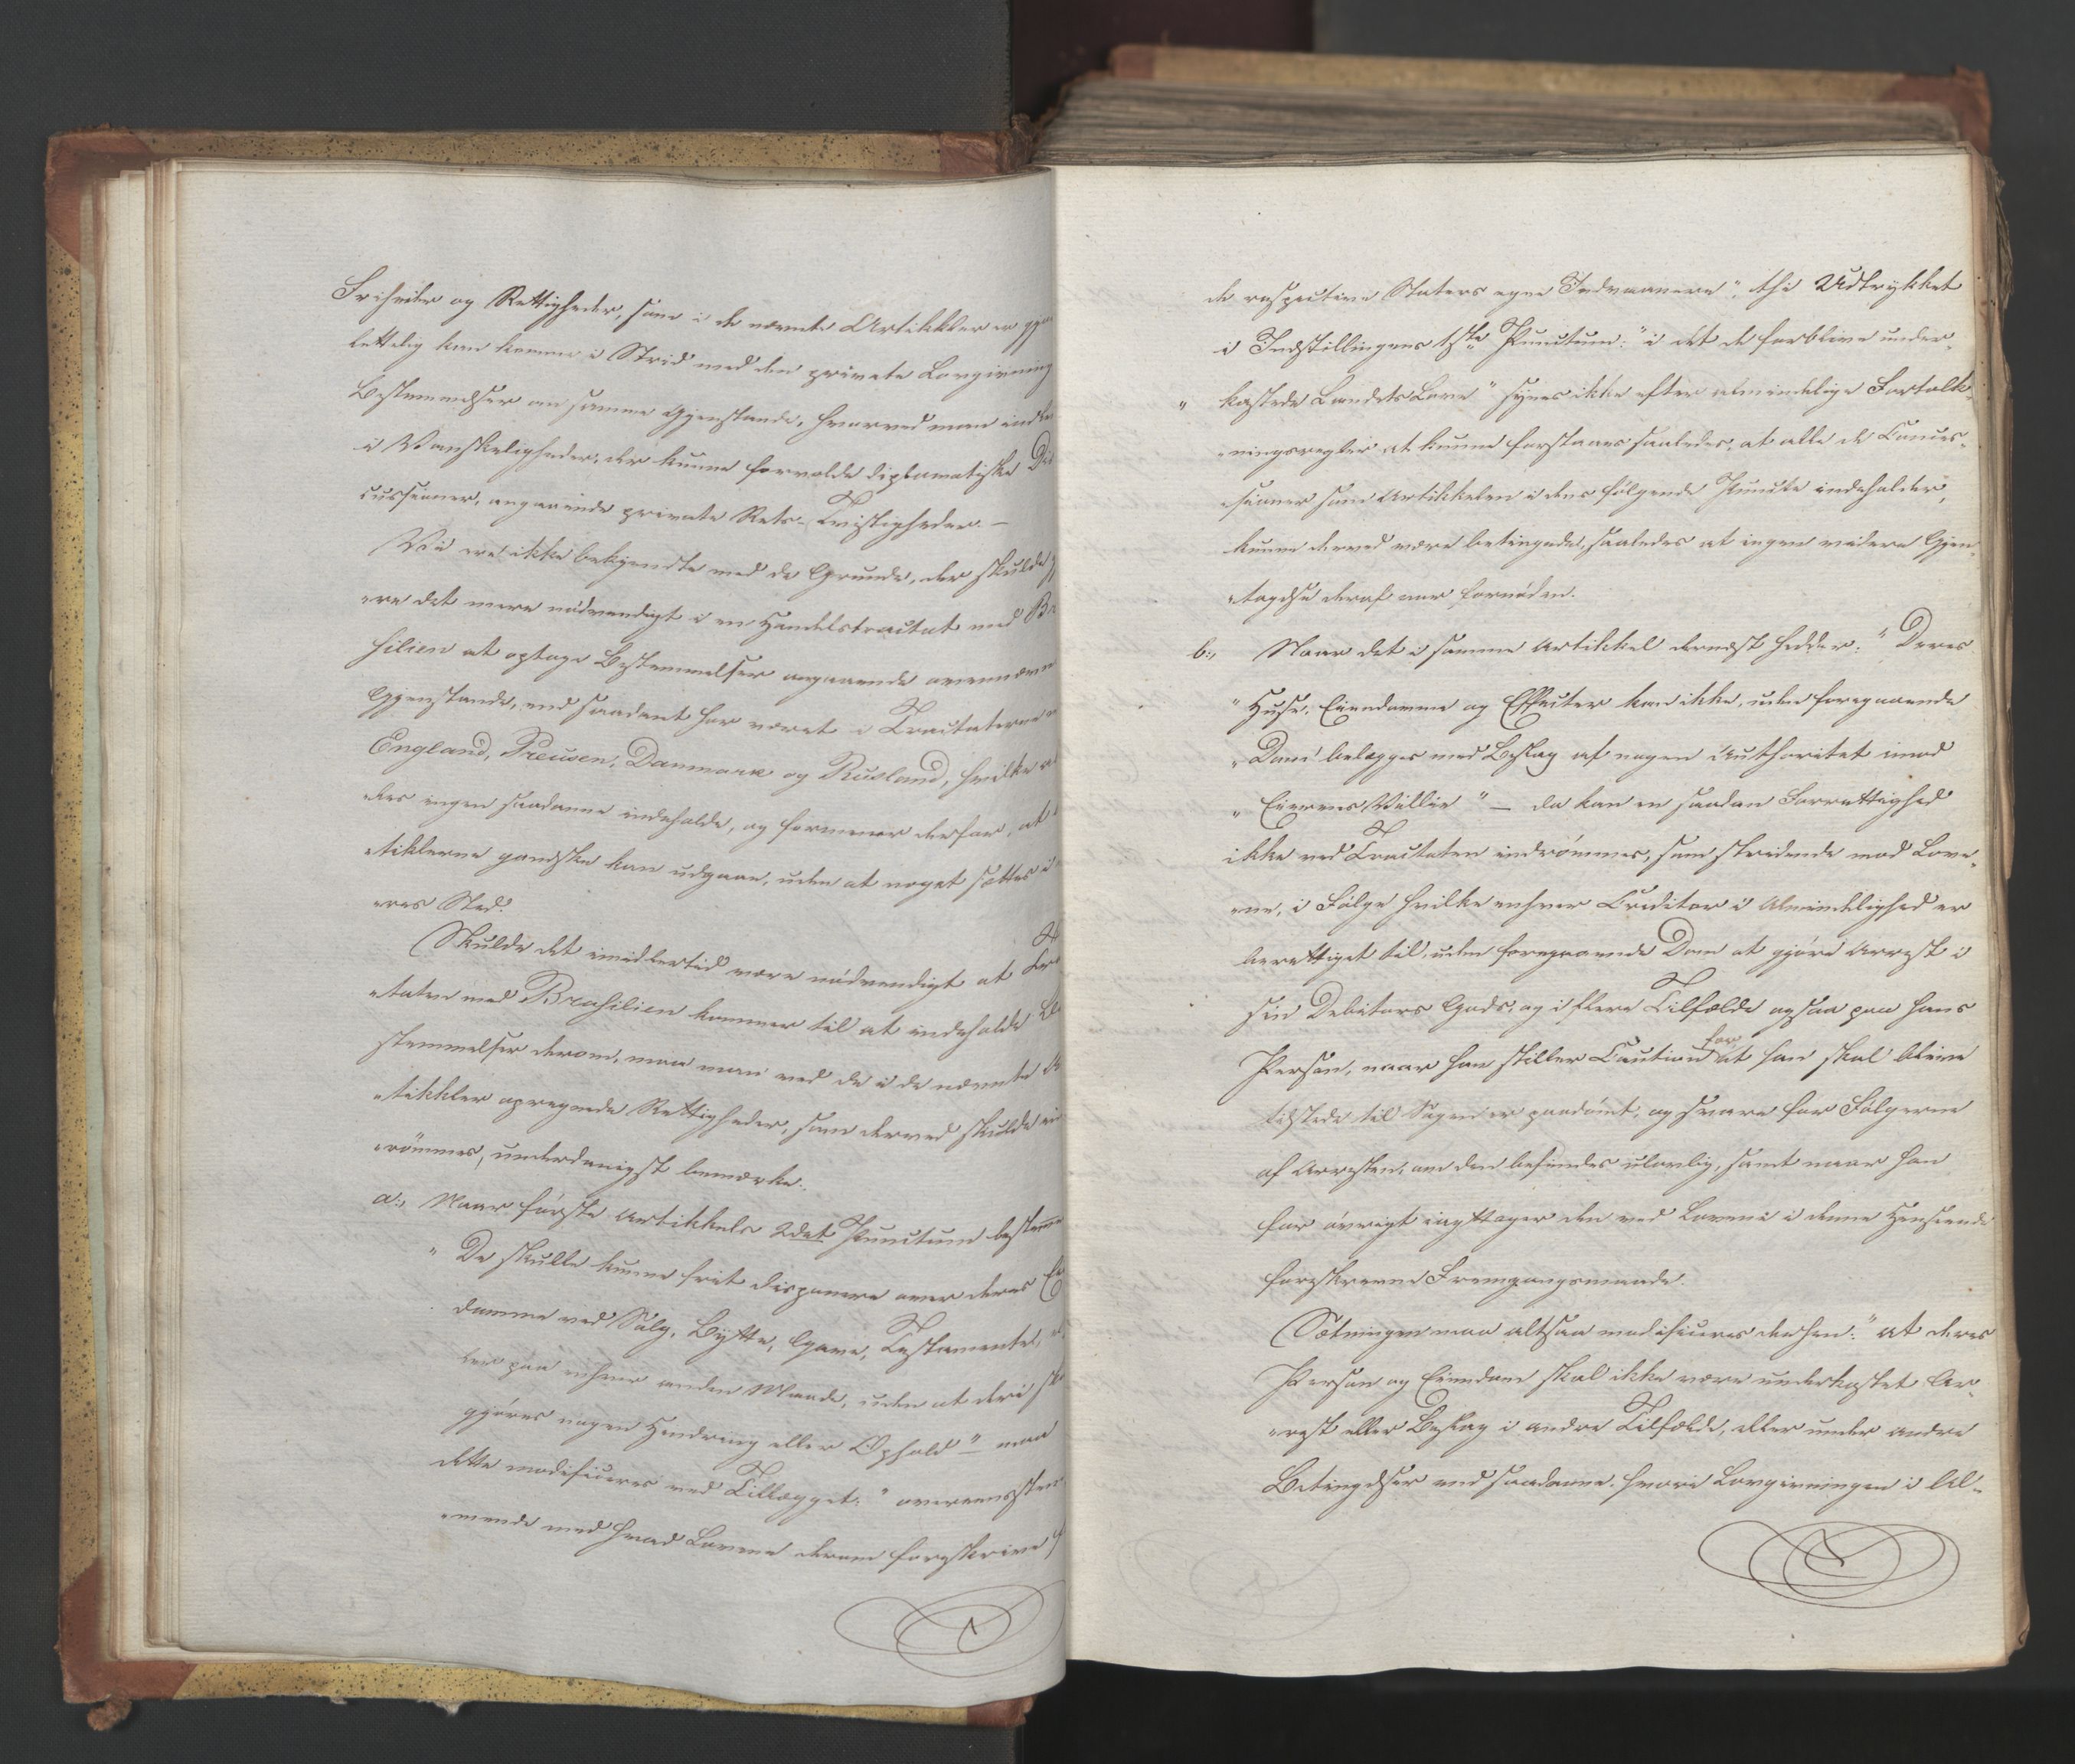 Friheder og Rettigheder, som i de nævnte Artikkler er gjo
lettelig kan komme i Strid med den private Lovgivnings
Bestemmelser om samme Gjenstande, hvorved man indle
i Vanskeligheder, der kunne forvolde diplomatiske Dis
cussioner, angaaende private Rets-Tvistigheder. —
Vi ere ikke bekjendte med de Grunde, der skulde gj
øre det mere nødvendigt i en Handelstractat med Bra
silien at optage Bestemmelser angaaende ovennævn
Gjenstande, end saadant har været i Tractaterne
England, Preusen, Danmark og Rusland, hvilke
des ingen saadanne indeholde, og formener derfor, at
tiklerne gandske kan udgaae, uden at noget sættes i
res Sted.
Skulde det imidlertid være nødvendigt at Tra
taten med Brasilien kommer til at indeholde Be
stemmelser derom, maa man ved de i de nævnte Ar
tikkler opregnede Rettigheder, som derved skulde ind
rømmes, underdanigst bemærke.
a:, Naar første Artikkels 2det Punctum bestemme
" De skulle kunne frit disponere over deres Ei
domme ved Salg, Bytte, Gave, Testamente, el
ler paa enhver anden Maade, uden at deri ska
gjøres nogen Hindring eller Ophold" maa
dette modificeres ved Tillægget: "overeensstem
mende med hvad Lovene derom foreskrive f
de respective Staters egne Indvaanere"; thi Udtrykket
i Indstillingens 1ste Punctum: "i det de forblive under-
" kastede Landets Love" synes ikke efter almindelige Fortolk-
ningsregler at kunne forstaaes saaledes, at alle de Conces-
sioner som Artikkelen i dens følgende Puncte indeholder,
kunne derved være betingede, saaledes at ingen videre Gjen-
tagelse deraf var fornøden.
b:, Naar det i samme Artikkel dernæst hedder: "Deres
" Huse, Eiendomme og Effecter kan ikke, uden foregaaende
" Dom belægges med Beslag af nogen Authoritet imod
" Eierens Villie" — da kan en saadan Forrettighed
ikke ved Tractaten indrømmes, som stridende mod Love-
ne, i Følge hvilke enhver Creditor i Almindelighed er
berettiget til, uden foregaaende Dom at gjøre Arrest i
sin Debitors Gods, og i flere Tilfælde ogsaa paa hans
Person, naar han stiller Caution for at han skal blive
tilstede til Sagen er paadømt, og svare for Følgerne
af Arresten, om den befindes ulovlig, samt naar han
for øvrigt iagttager den ved Lovene i denne Henseende
foreskrevne Fremgangsmaade.
Sætningen maa altsaa modificeres derhen: "at deres
Person og Eiendom skal ikke være underkastet Ar-
rest eller Beslag i andre Tilfælde, eller under andre
Betingelser end saadanne, hvori Lovgivningen i Al-